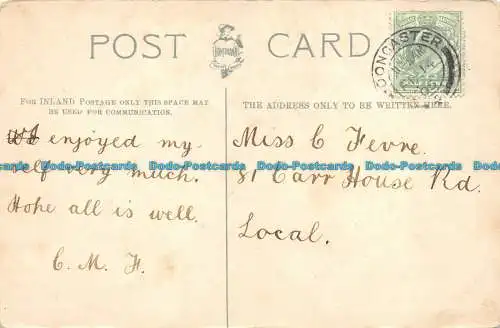 POST CARD
DONCASTER
FOR INLAND POSTAGE ONLY THIS SPACE MAY
BE USED FOR COMMUNICATION.
THE ADDRESS ONLY TO BE WRITTEN HERE.
I enjoyed my-
self very much.
Hope all is well.
C. M. F.
Miss C Fevre.
81 Carr House Rd.
Local.
Dodo-Postcards Dodo-Postcards Dodo-Postcards Dodo-Postcards Dodo-Postcards